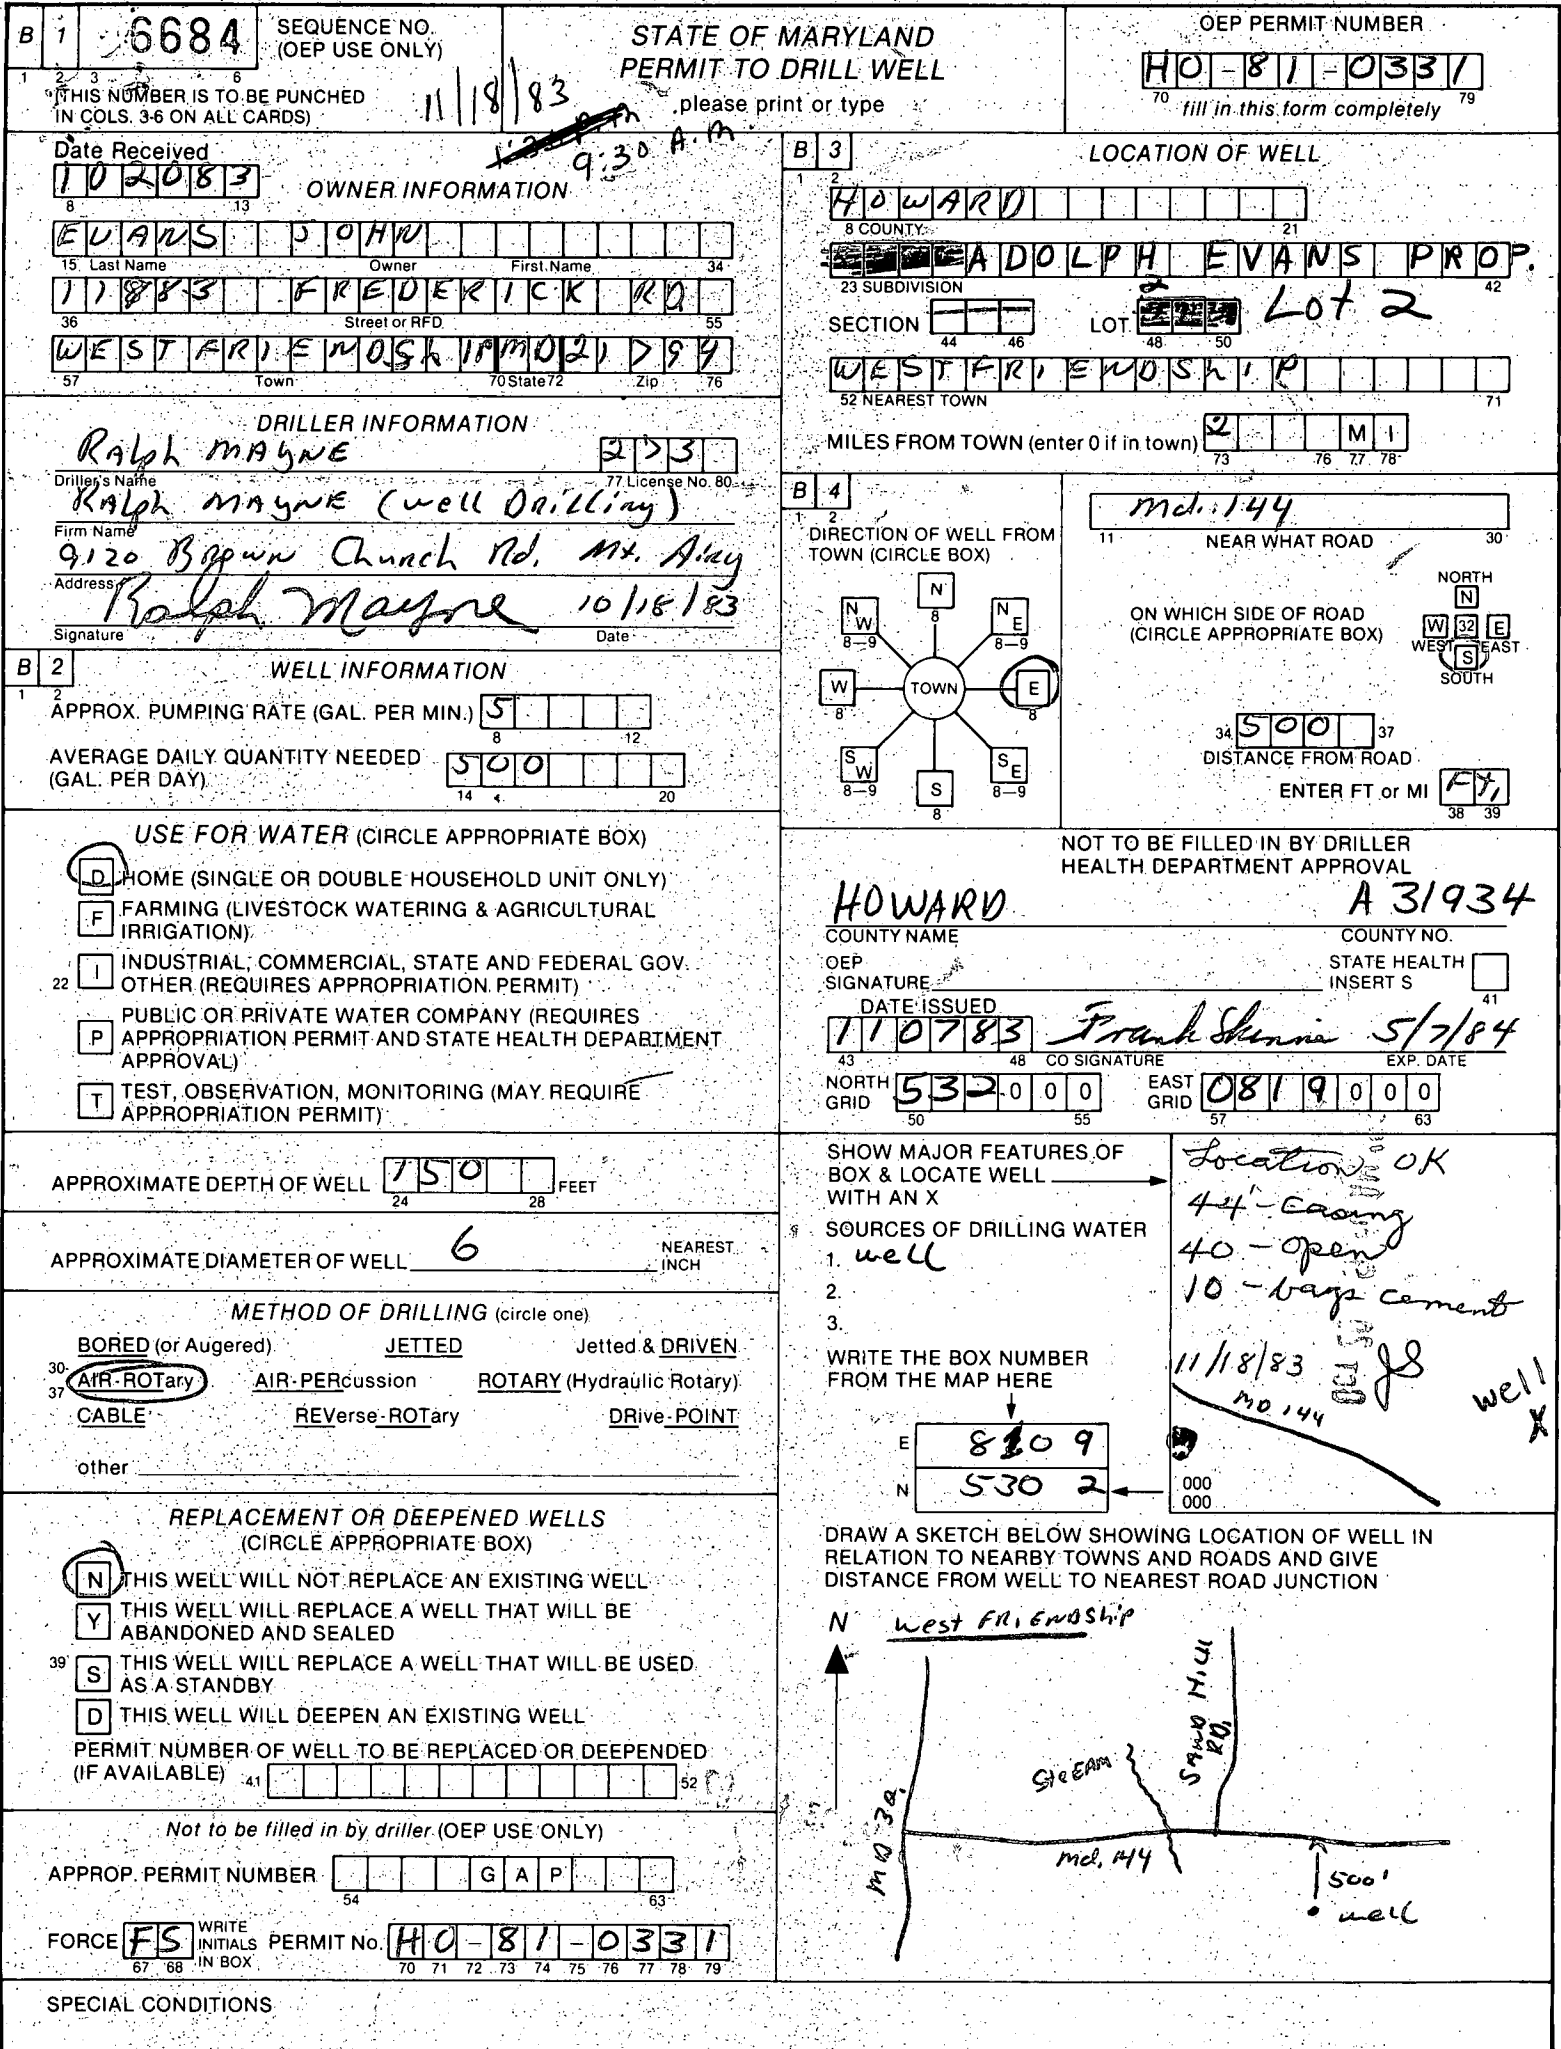 B 1 6684 SEQUENCE NO. (OEP USE ONLY)
1 2 3 6
(THIS NUMBER IS TO BE PUNCHED
IN COLS. 3-6 ON ALL CARDS)
11/18/83
9:30 A.M
STATE OF MARYLAND
PERMIT TO DRILL WELL
please print or type
OEP PERMIT NUMBER
HO-81-0331
70 79
fill in this form completely
Date Received
102083
8 13
OWNER INFORMATION
EVANS JOHN
15 Last Name Owner First Name 34
11883 FREDERICK RD
36 Street or RFD 55
WEST FRIENDSHIP MD 21794
57 Town 70 State 72 Zip 76
DRILLER INFORMATION
Ralph MAYNE 273
Driller's Name 77 License No. 80
Ralph MAYNE (Well Drilling)
Firm Name
9120 Brown Church Rd. Mt. Airy
Address
Ralph Mayne 10/18/83
Signature Date
B 2 WELL INFORMATION
1 2
APPROX. PUMPING RATE (GAL. PER MIN.) 5
8 12
AVERAGE DAILY QUANTITY NEEDED
(GAL. PER DAY) 500
14 20
USE FOR WATER (CIRCLE APPROPRIATE BOX)
D HOME (SINGLE OR DOUBLE HOUSEHOLD UNIT ONLY)
F FARMING (LIVESTOCK WATERING & AGRICULTURAL
IRRIGATION)
22 I INDUSTRIAL, COMMERCIAL, STATE AND FEDERAL GOV.
OTHER (REQUIRES APPROPRIATION PERMIT)
P PUBLIC OR PRIVATE WATER COMPANY (REQUIRES
APPROPRIATION PERMIT AND STATE HEALTH DEPARTMENT
APPROVAL)
T TEST, OBSERVATION, MONITORING (MAY REQUIRE
APPROPRIATION PERMIT)
APPROXIMATE DEPTH OF WELL 150 FEET
24 28
APPROXIMATE DIAMETER OF WELL 6 NEAREST INCH
METHOD OF DRILLING (circle one)
BORED (or Augered) JETTED Jetted & DRIVEN
30-37 AIR-ROTary AIR-PERcussion ROTARY (Hydraulic Rotary)
CABLE REVerse-ROTary DRive-POINT
other
REPLACEMENT OR DEEPENED WELLS
(CIRCLE APPROPRIATE BOX)
N THIS WELL WILL NOT REPLACE AN EXISTING WELL
Y THIS WELL WILL REPLACE A WELL THAT WILL BE
ABANDONED AND SEALED
39 S THIS WELL WILL REPLACE A WELL THAT WILL BE USED
AS A STANDBY
D THIS WELL WILL DEEPEN AN EXISTING WELL
PERMIT NUMBER OF WELL TO BE REPLACED OR DEEPENDED
(IF AVAILABLE) 41 52
Not to be filled in by driller (OEP USE ONLY)
APPROP. PERMIT NUMBER GAP
54 63
FORCE FS WRITE INITIALS IN BOX PERMIT No. HO-81-0331
67 68 70 71 72 73 74 75 76 77 78 79
SPECIAL CONDITIONS
B 3 LOCATION OF WELL
1 2
HOWARD
8 COUNTY 21
ADOLPH EVANS PROP.
23 SUBDIVISION 42
SECTION LOT 2 Lot 2
44 46 48 50
WEST FRIENDSHIP
52 NEAREST TOWN 71
MILES FROM TOWN (enter 0 if in town) 2 MI
73 76 77 78
B 4
1 2
DIRECTION OF WELL FROM
TOWN (CIRCLE BOX)
N 8
NW 8-9 NE 8-9
W 8 TOWN E 8
SW 8-9 SE 8-9
S 8
Md. 144
11 NEAR WHAT ROAD 30
ON WHICH SIDE OF ROAD
(CIRCLE APPROPRIATE BOX)
NORTH
N
W 32 E
WEST EAST
S
SOUTH
34 500 37
DISTANCE FROM ROAD
ENTER FT or MI Ft.
38 39
NOT TO BE FILLED IN BY DRILLER
HEALTH DEPARTMENT APPROVAL
HOWARD A 31934
COUNTY NAME COUNTY NO.
OEP SIGNATURE STATE HEALTH INSERT S
41
DATE ISSUED
110783 Frank Skinner 5/7/84
43 48 CO SIGNATURE EXP. DATE
NORTH GRID 532000 EAST GRID 0819000
50 55 57 63
SHOW MAJOR FEATURES OF
BOX & LOCATE WELL
WITH AN X
SOURCES OF DRILLING WATER
1. well
2.
3.
WRITE THE BOX NUMBER
FROM THE MAP HERE
E 8109
N 5302
Location OK
44' - casing
40 - open
10 - bags cement
11/18/83 JS
MD 144
well
X
000
000
DRAW A SKETCH BELOW SHOWING LOCATION OF WELL IN
RELATION TO NEARBY TOWNS AND ROADS AND GIVE
DISTANCE FROM WELL TO NEAREST ROAD JUNCTION
N West FRIENDShip
SAND HILL RD.
StrEAM
MD 32
Md. 144
500'
well